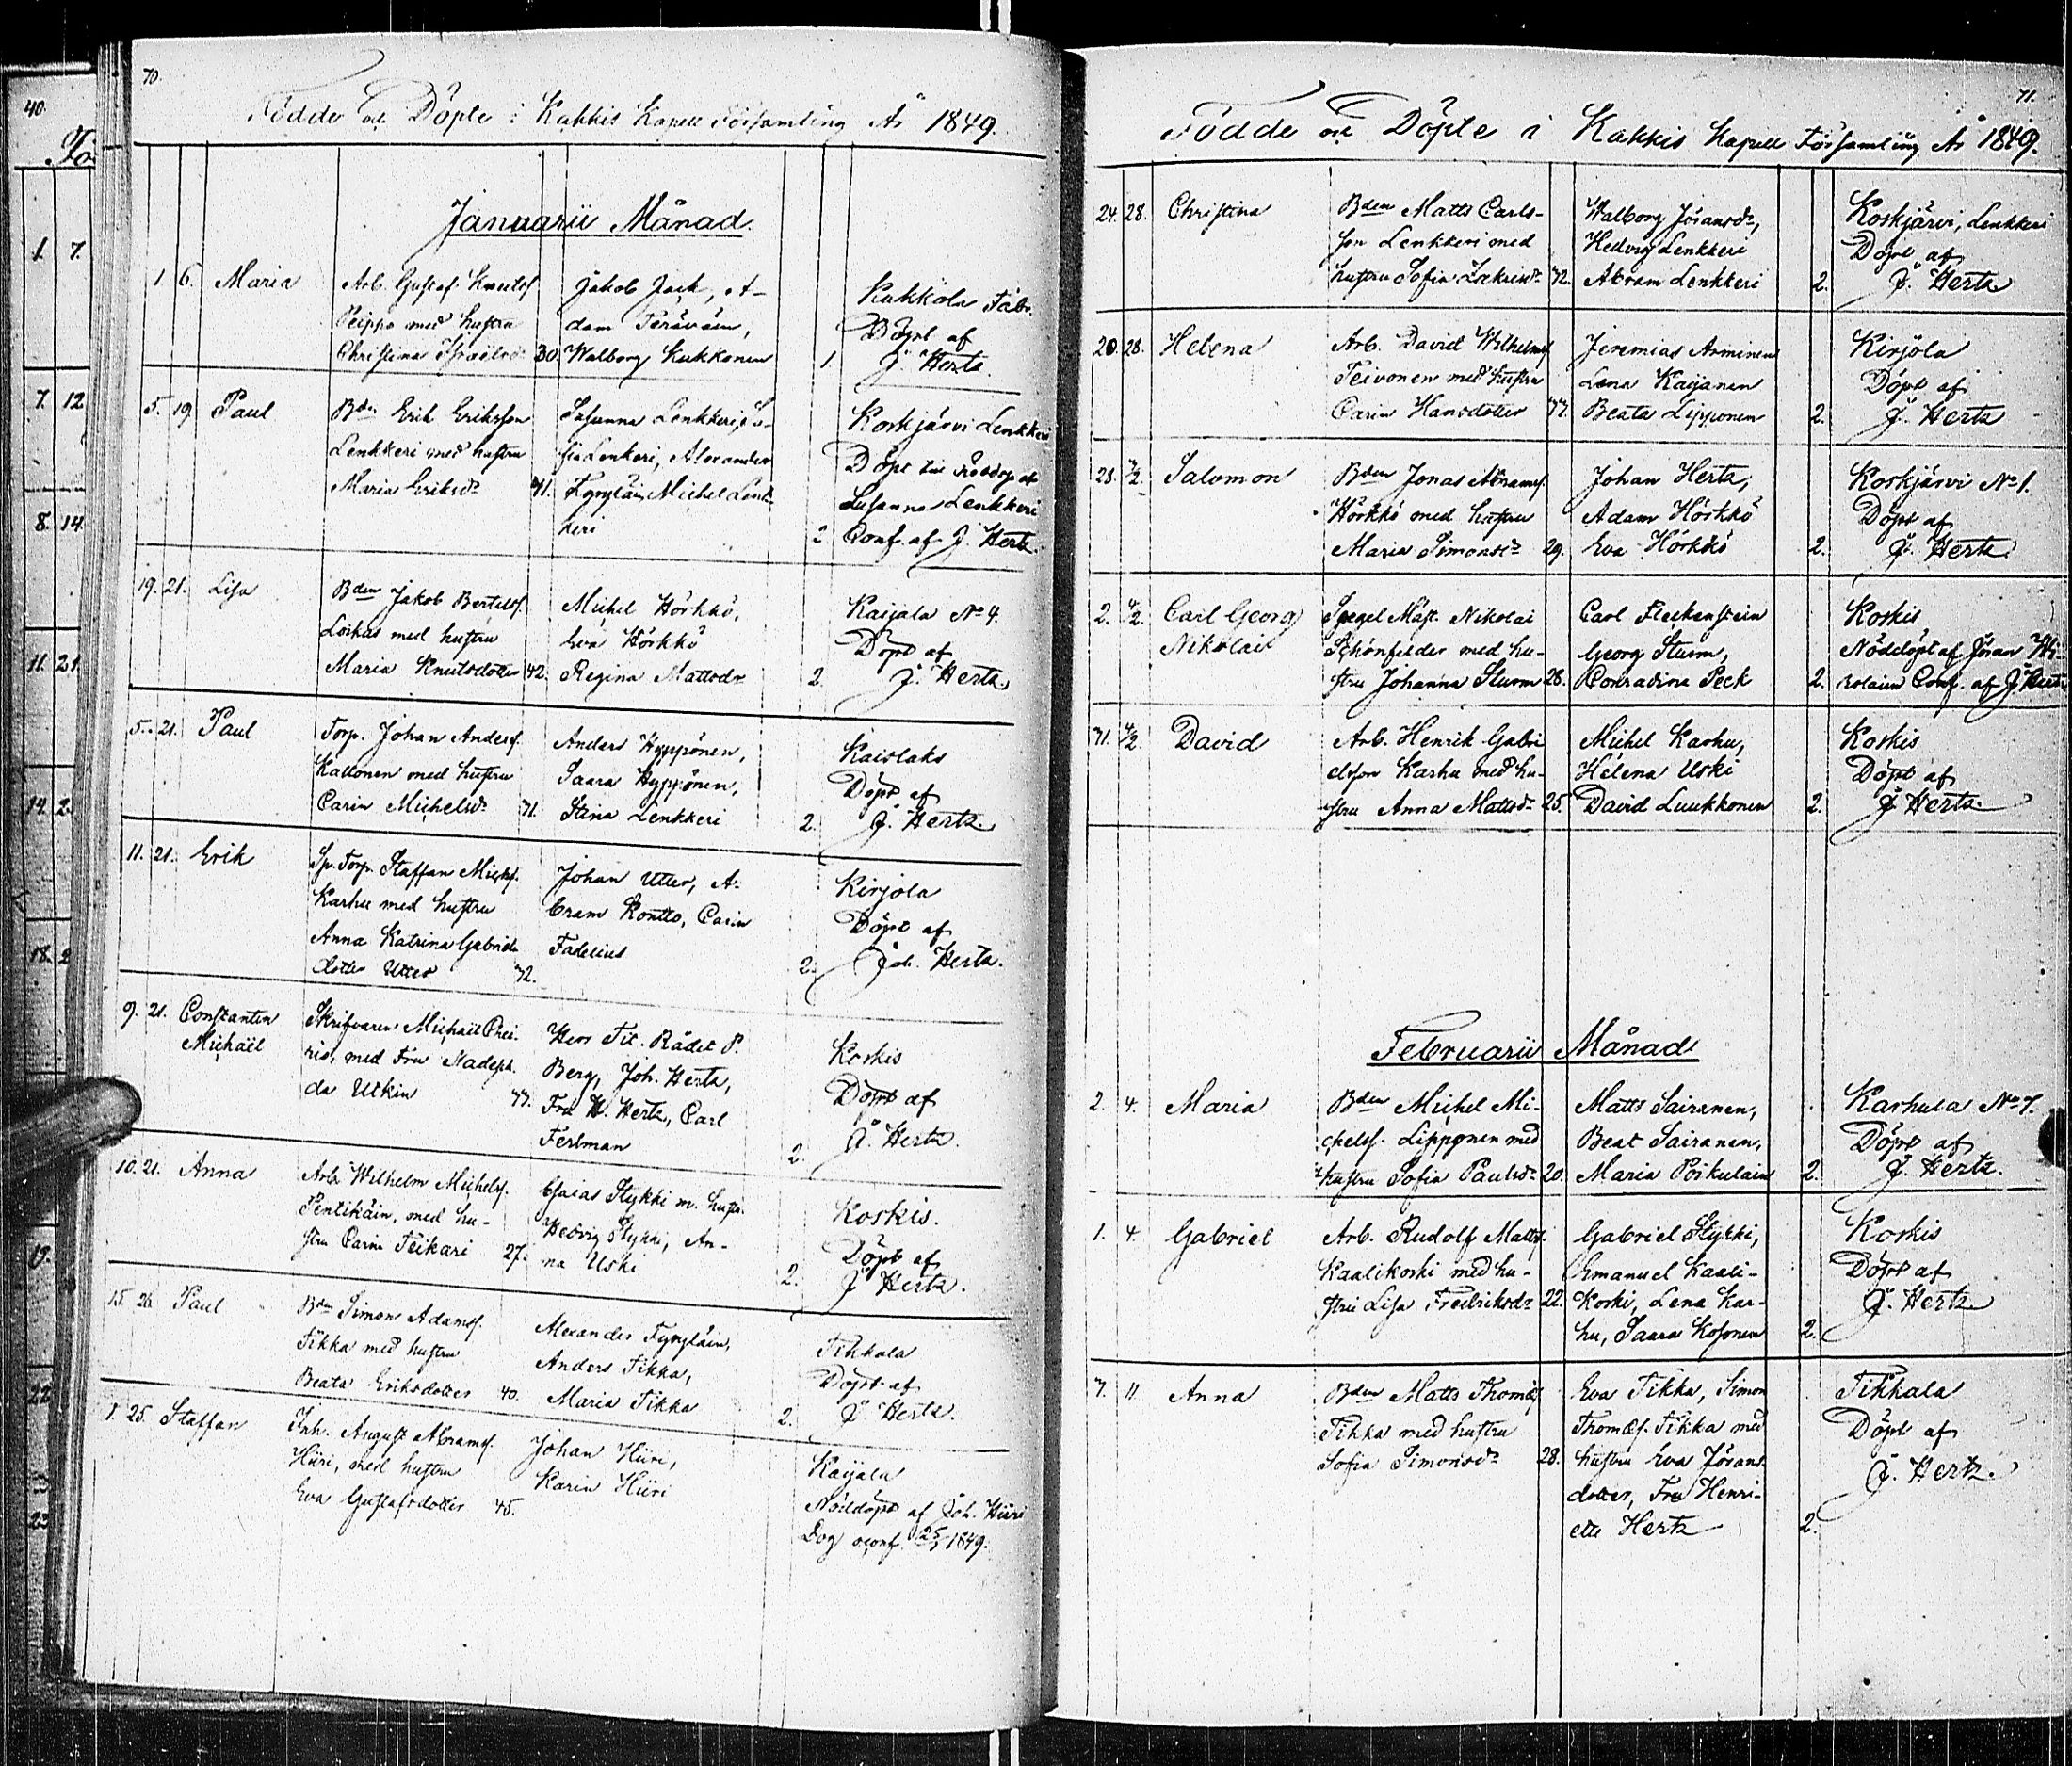 40.
Fö
1. 7.
7. 12
8. 14.
11. 21.
14. 2
18. 2
19.
22
23
70.
Födde och Döpte i Kakkis Kapell Församling År 1849.
Januarii Månad.
1 6. Maria Arb. Gustaf Knutss. Jakob Jack, A- Kukkola Fabr.
Peippo med hustru dam Teräväin, Döpt af
Christina Israelsdr 30. Walborg Kukkonen 1. J. Hertz.
5. 19. Paul Bdn Erik Eriksson Susanna Lenkkeri, So- Koskjärvi Lenkkeri
Lenkkeri med hustru fia Lenkeri, Alexander Döpt
Maria Eriksdr 41. Tyryläin, Michel Lenk- Susanna Lenkkeri
keri 2. Conf. af J. Hertz.
19. 21. Lisa Bden Jakob Bertelss. Michel Hörkkö, Kaijala No 4.
Loikas med hustru Eva Hörkkö Döpt af
Maria Knutsdotter 42. Regina Mattsdr 2. J. Hertz.
5. 21. Paul Torp. Johan Anderss. Anders Hyppönen, Kaislaks
Kallonen med hustru Saara Hyppönen, Döpt af
Carin Michelsdr 41. Stina Lenkkeri 2. J. Hertz.
11. 21. Erik Sp. Torp. Staffan Michss. Johan Utter, A- Kirjola
Karhu med hustru bram Kontto, Carin Döpt af
Anna Katrina Gabriels- Fadelius
dotter Utter 42. 2. Joh. Hertz.
9. 21. Constantin Skrifvaren Michail Herr Tit. Rådet P. Koskis
Michaël med Fru Nadesch- Berg, Joh. Hertz, Döpt af
da Utkin 44. Fru H. Hertz, Carl J. Hertz.
Ferlman 2.
10. 21. Anna Arb. Wilhelm Michelss. Esaias Stykki m. hustr. Koskis.
Pentikäin, med hu- Hedvig Stykki, An- Döpt af
stru Carin Teikari 27. na Uski 2. J. Hertz.
15. 26. Paul Bdn Simon Adamss. Alexander Tyryläin, Tikkala
Tikka med hustru Anders Tikka, Döpt af
Beata Eriksdotter 40. Maria Tikka 2. J. Hertz.
1. 25. Staffan Inh. August Abramss. Johan Hiiri, Kaijala
Hiiri, med hustru Karin Hiiri Nöddöpt af Joh. Hiiri
Eva Gustafsdotter 45. Dog oconf. 25/1 1849.
71.
Födde och Döpte i Kakkis Kapell Församling År 1849.
24. 28. Christina Bden Matts Carls- Walborg Jöransdr, Koskjärvi, Lenkkeri
son Lenkkeri med Hedvig Lenkkeri Döpt af
hustru Sofia Zakrisdr 42. Abram Lenkkeri 2. J. Hertz
20. 28. Helena Arb. David Wilhelmss. Jeremias Arminen Kirjola
Teivonen med hustru Lena Kaijanen Döpt af
Carin Hansdotter 44. Beata Lipponen 2. J. Hertz
28. 4/2. Salomon Bden Jonas Abramss. Johan Hertz, Koskjärvi No 1.
Hörkkö med hustru Adam Hörkkö Döpt af
Maria Simonsdr 29. Eva Hörkkö 2. J. Hertz.
2. 4/2. Carl Georg Spegel Mäst. Nikolai Carl Fleckenstein Koskis
Nikolai Schönfelder med hu- Georg Sturm, Nöddöpt af Jöran Hi-
stru Johanna Sturm 28. Conradina Peck 2. rolain Conf. af J. Hertz.
4/2. David Arb. Henrik Gabri- Michel Karhu, Koskis
elsson Karhu med hu- Helena Uski Döpt af
stru Anna Mattsdr 25. David Luukkonen 2. J. Hertz.
Februarii Månad
2. 4. Maria Bden Michel Mi- Matts Sairanen, Karhula No 7.
chelss. Lipponen med Beat Sairanen, Döpt af
hustru Sofia Paulsdr 20. Maria Poikulain 2. J. Hertz.
1. 4. Gabriel Arb. Rudolf Mattss. Gabriel Stykki, Koskis
Kaalikoski med hu- Emanuel Kaali- Döpt af
stru Lisa Fredriksdr 22. koski, Lena Kar- J. Hertz.
hu, Saara Kosonen 2.
7. 11. Anna Bden Matts Thomæs. Eva Tikka, Simon Tikkala
Tikka med hustru Thomæs. Tikka med Döpt af
Sofia Simonsdr 28. hustru Eva Jörans- J. Hertz.
dotter, Fru Henri-
ette Hertz 2.